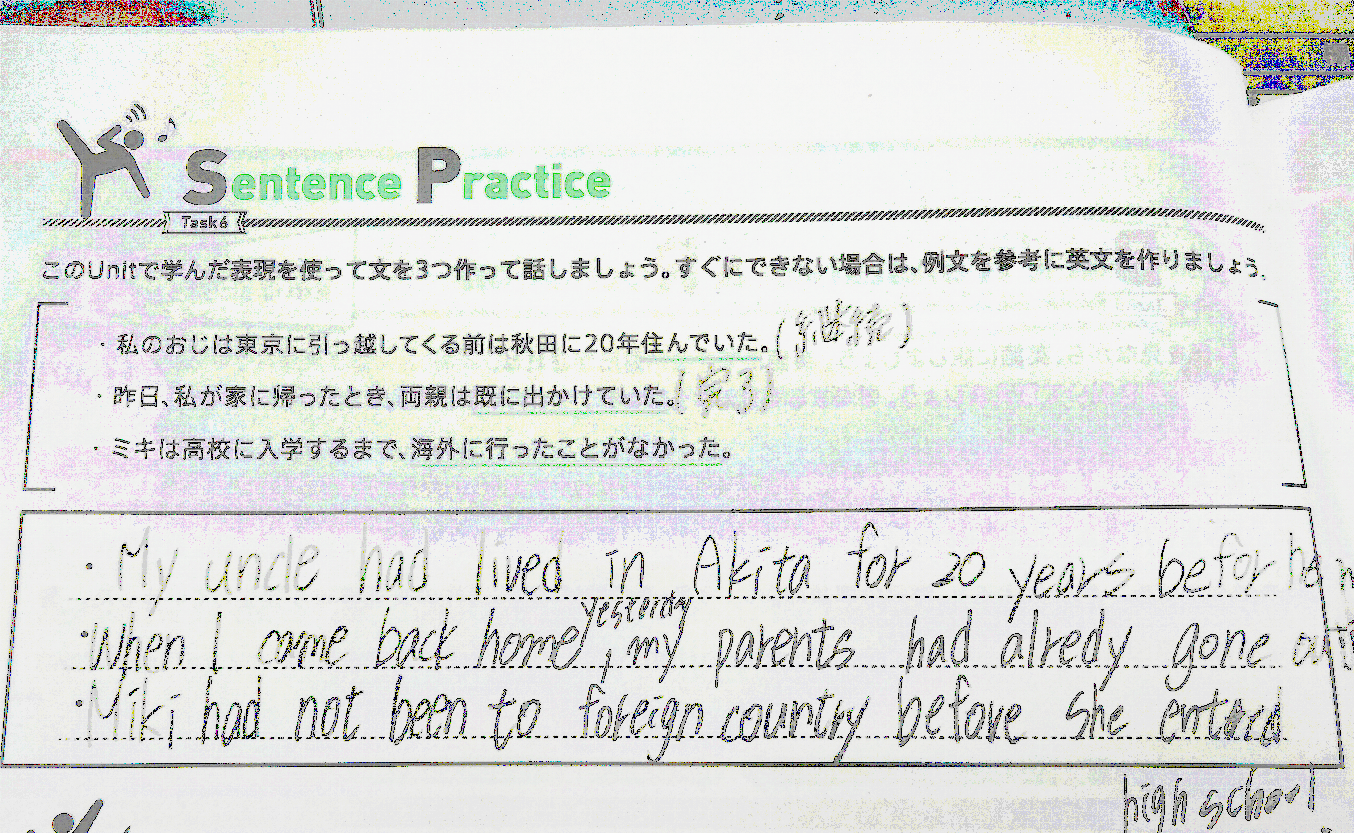 Sentence Practice
Task6
このUnitで学んだ表現を使って文を3つ作って話しましょう。すぐにできない場合は、例文を参考に英文を作りましょう。
・私のおじは東京に引っ越してくる前は秋田に20年住んでいた。(継続)
・昨日、私が家に帰ったとき、両親は既に出かけていた。(完了)
・ミキは高校に入学するまで、海外に行ったことがなかった。
・My uncle had lived in Akita for 20 years befor he
yesterday
・When I came back home, my parents had alredy gone out
・Miki had not been to foreign country before she enterd
high school